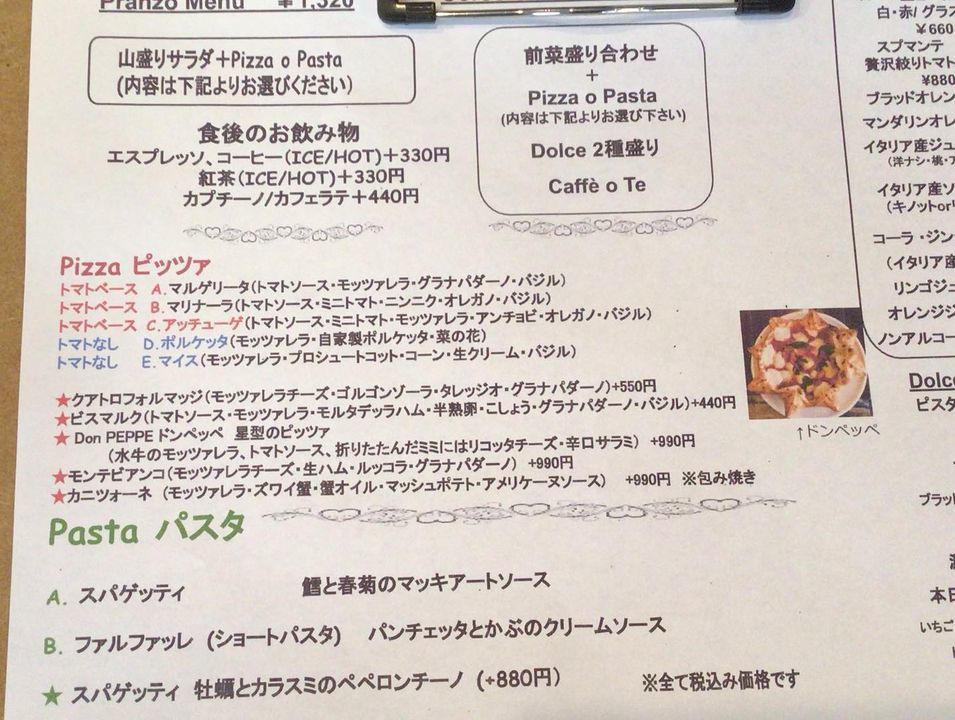 Pranzo Menu ￥1,320
山盛りサラダ＋Pizza o Pasta
(内容は下記よりお選びください)
食後のお飲み物
エスプレッソ、コーヒー(ICE/HOT)＋330円
紅茶(ICE/HOT)＋330円
カプチーノ/カフェラテ＋440円
前菜盛り合わせ
+
Pizza o Pasta
(内容は下記よりお選び下さい)
Dolce 2種盛り
Caffè o Te
Pizza ピッツァ
トマトベース A.マルゲリータ(トマトソース・モッツァレラ・グラナパダーノ・バジル)
トマトベース B.マリナーラ(トマトソース・ミニトマト・ニンニク・オレガノ・バジル)
トマトベース C.アッチューゲ(トマトソース・ミニトマト・モッツァレラ・アンチョビ・オレガノ・バジル)
トマトなし D.ポルケッタ(モッツァレラ・自家製ポルケッタ・菜の花)
トマトなし E.マイス(モッツァレラ・プロシュートコット・コーン・生クリーム・バジル)
★クアトロフォルマッジ(モッツァレラチーズ・ゴルゴンゾーラ・タレッジオ・グラナパダーノ)+550円
★ビスマルク(トマトソース・モッツァレラ・モルタデッラハム・半熟卵・こしょう・グラナパダーノ・バジル)+440円
★ Don PEPPE ドンペッペ 星型のピッツァ
(水牛のモッツァレラ、トマトソース、折りたたんだミミにはリコッタチーズ・辛口サラミ) +990円
★モンテビアンコ(モッツァレラチーズ・生ハム・ルッコラ・グラナパダーノ) +990円
★カニツォーネ (モッツァレラ・ズワイ蟹・蟹オイル・マッシュポテト・アメリケーヌソース) +990円 ※包み焼き
↑ドンペッペ
Pasta パスタ
A. スパゲッティ 鱈と春菊のマッキアートソース
B. ファルファッレ (ショートパスタ) パンチェッタとかぶのクリームソース
★ スパゲッティ 牡蠣とカラスミのペペロンチーノ (+880円)
※全て税込み価格です
白・赤/グラス
￥660
スプマンテ
贅沢絞りトマト
￥880
ブラッドオレン
マンダリンオレ
イタリア産ジュ
(洋ナシ・桃・ア
イタリア産ソ
(キノットor
コーラ・ジン
(イタリア産
リンゴジュ
オレンジジ
ノンアルコー
Dolce
ピスタ
ブラッ
本日
いちご